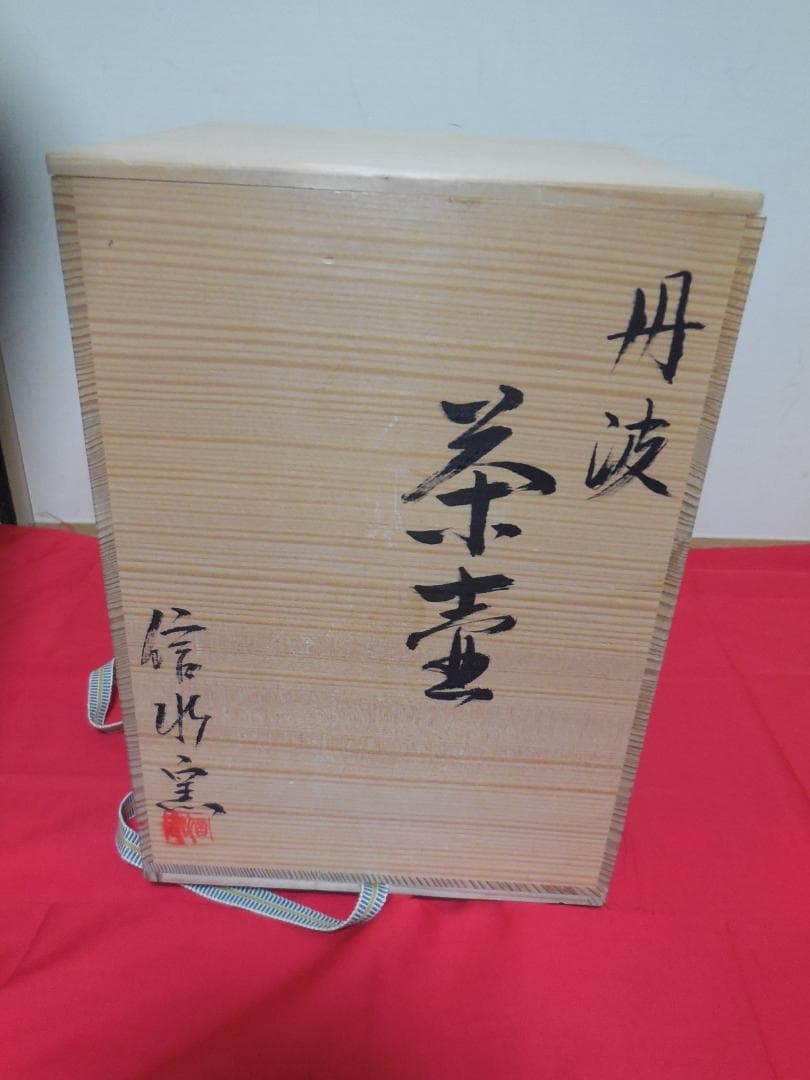 丹波
茶壷
信水窯